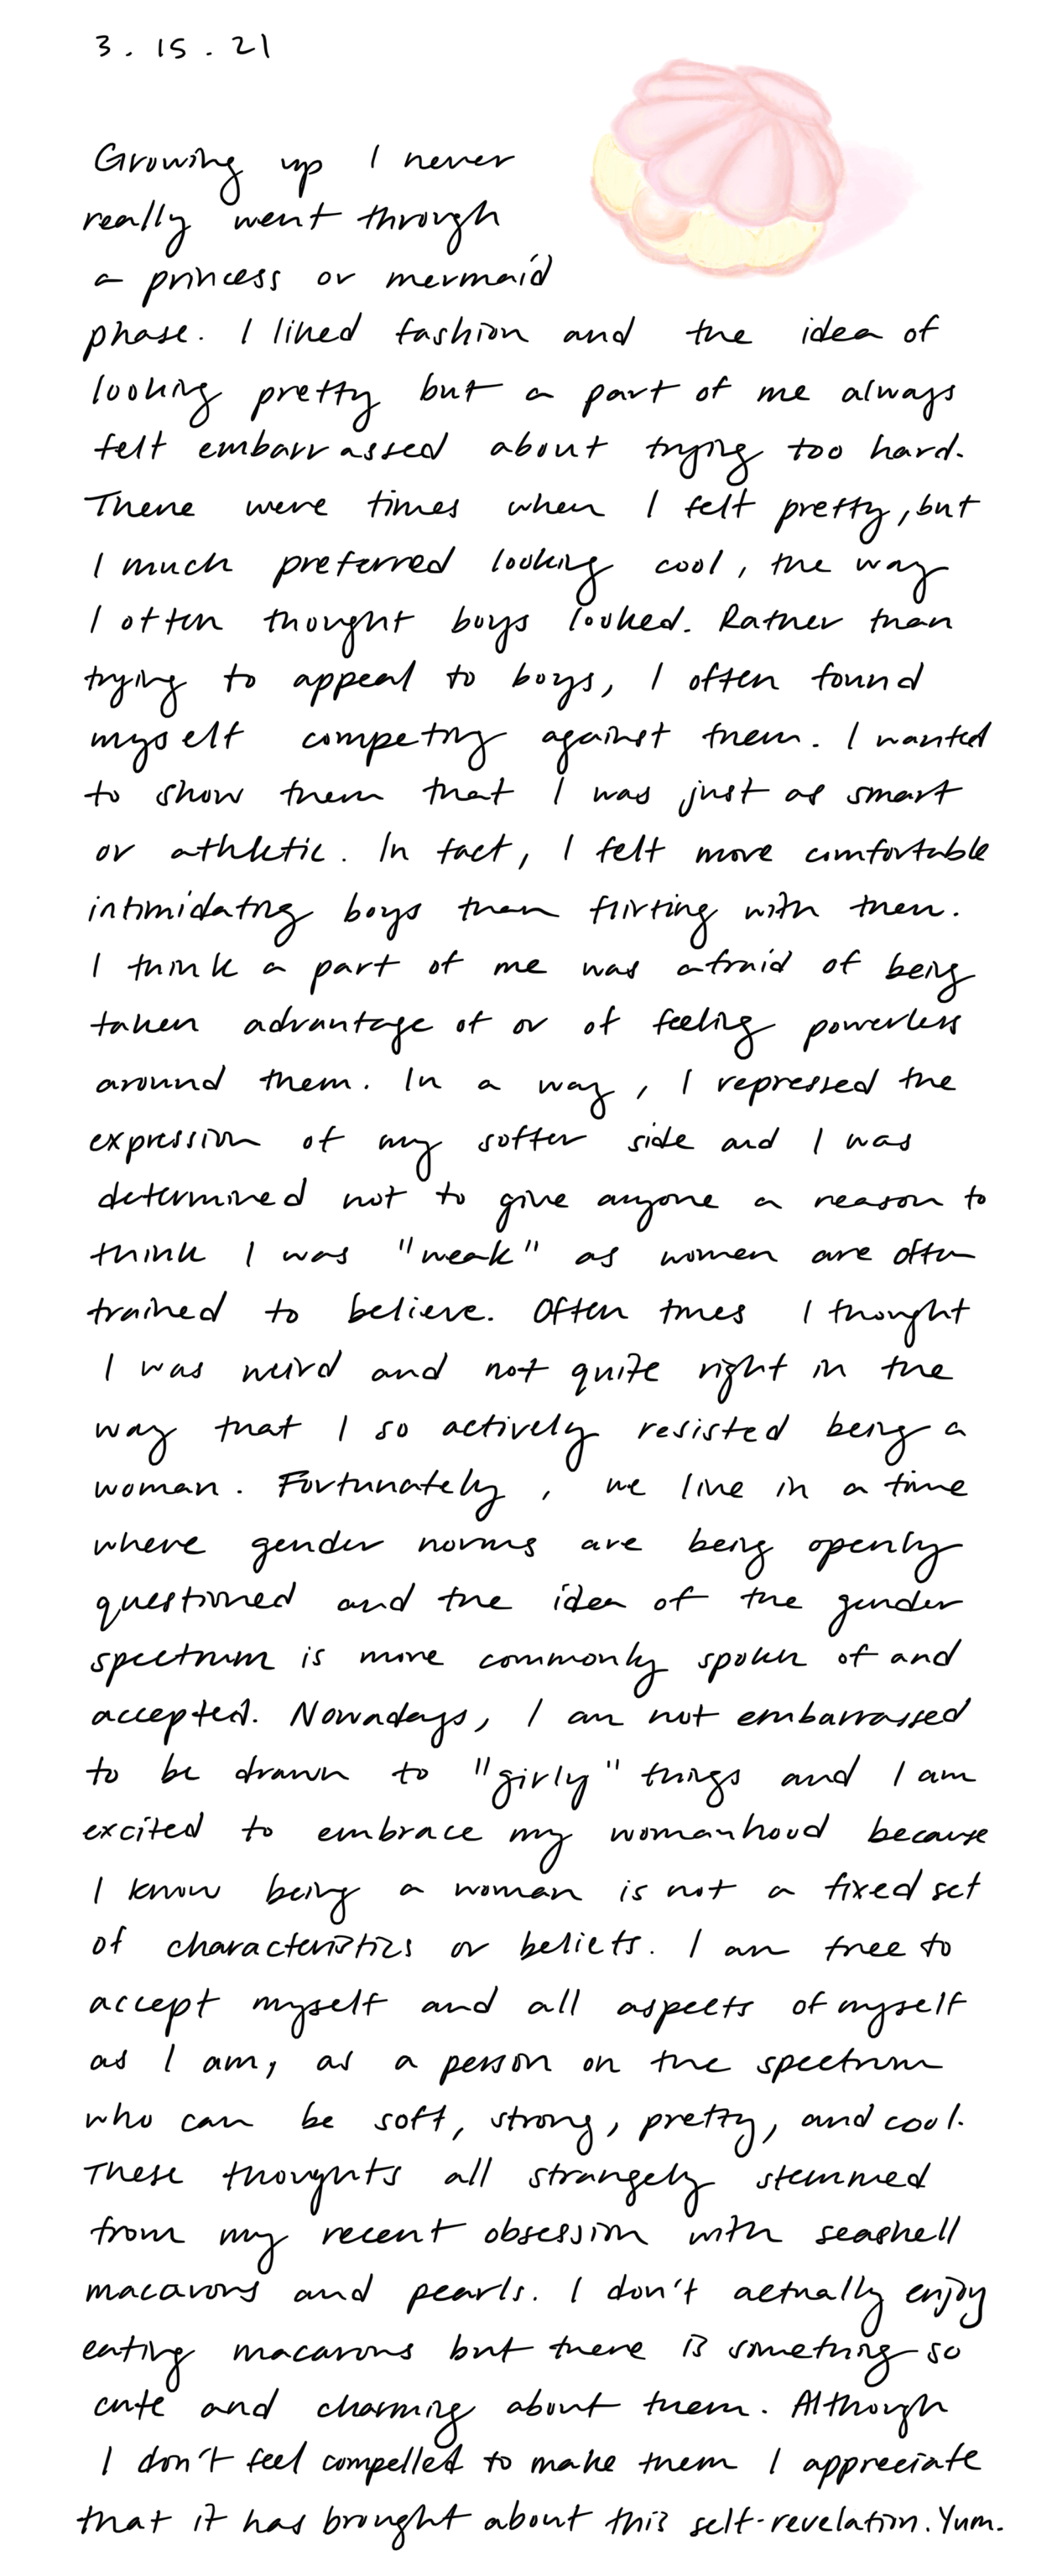 3.15.21
Growing up I never
really went through
a princess or mermaid
phase. I liked fashion and the idea of
looking pretty but a part of me always
felt embarrassed about trying too hard.
There were times when I felt pretty, but
I much preferred looking cool, the way
I often thought boys looked. Rather than
trying to appeal to boys, I often found
myself competing against them. I wanted
to show them that I was just as smart
or athletic. In fact, I felt more comfortable
intimidating boys than flirting with them.
I think a part of me was afraid of being
taken advantage of or of feeling powerless
around them. In a way, I repressed the
expression of my softer side and I was
determined not to give anyone a reason to
think I was "weak" as women are often
trained to believe. Often times I thought
I was weird and not quite right in the
way that I so actively resisted being a
woman. Fortunately, we live in a time
where gender norms are being openly
questioned and the idea of the gender
spectrum is more commonly spoken of and
accepted. Nowadays, I am not embarrassed
to be drawn to "girly" things and I am
excited to embrace my womanhood because
I know being a woman is not a fixed set
of characteristics or beliefs. I am free to
accept myself and all aspects of myself
as I am, as a person on the spectrum
who can be soft, strong, pretty, and cool.
These thoughts all strangely stemmed
from my recent obsession with seashell
macarons and pearls. I don't actually enjoy
eating macarons but there is something so
cute and charming about them. Although
I don't feel compelled to make them I appreciate
that it has brought about this self-revelation. Yum.